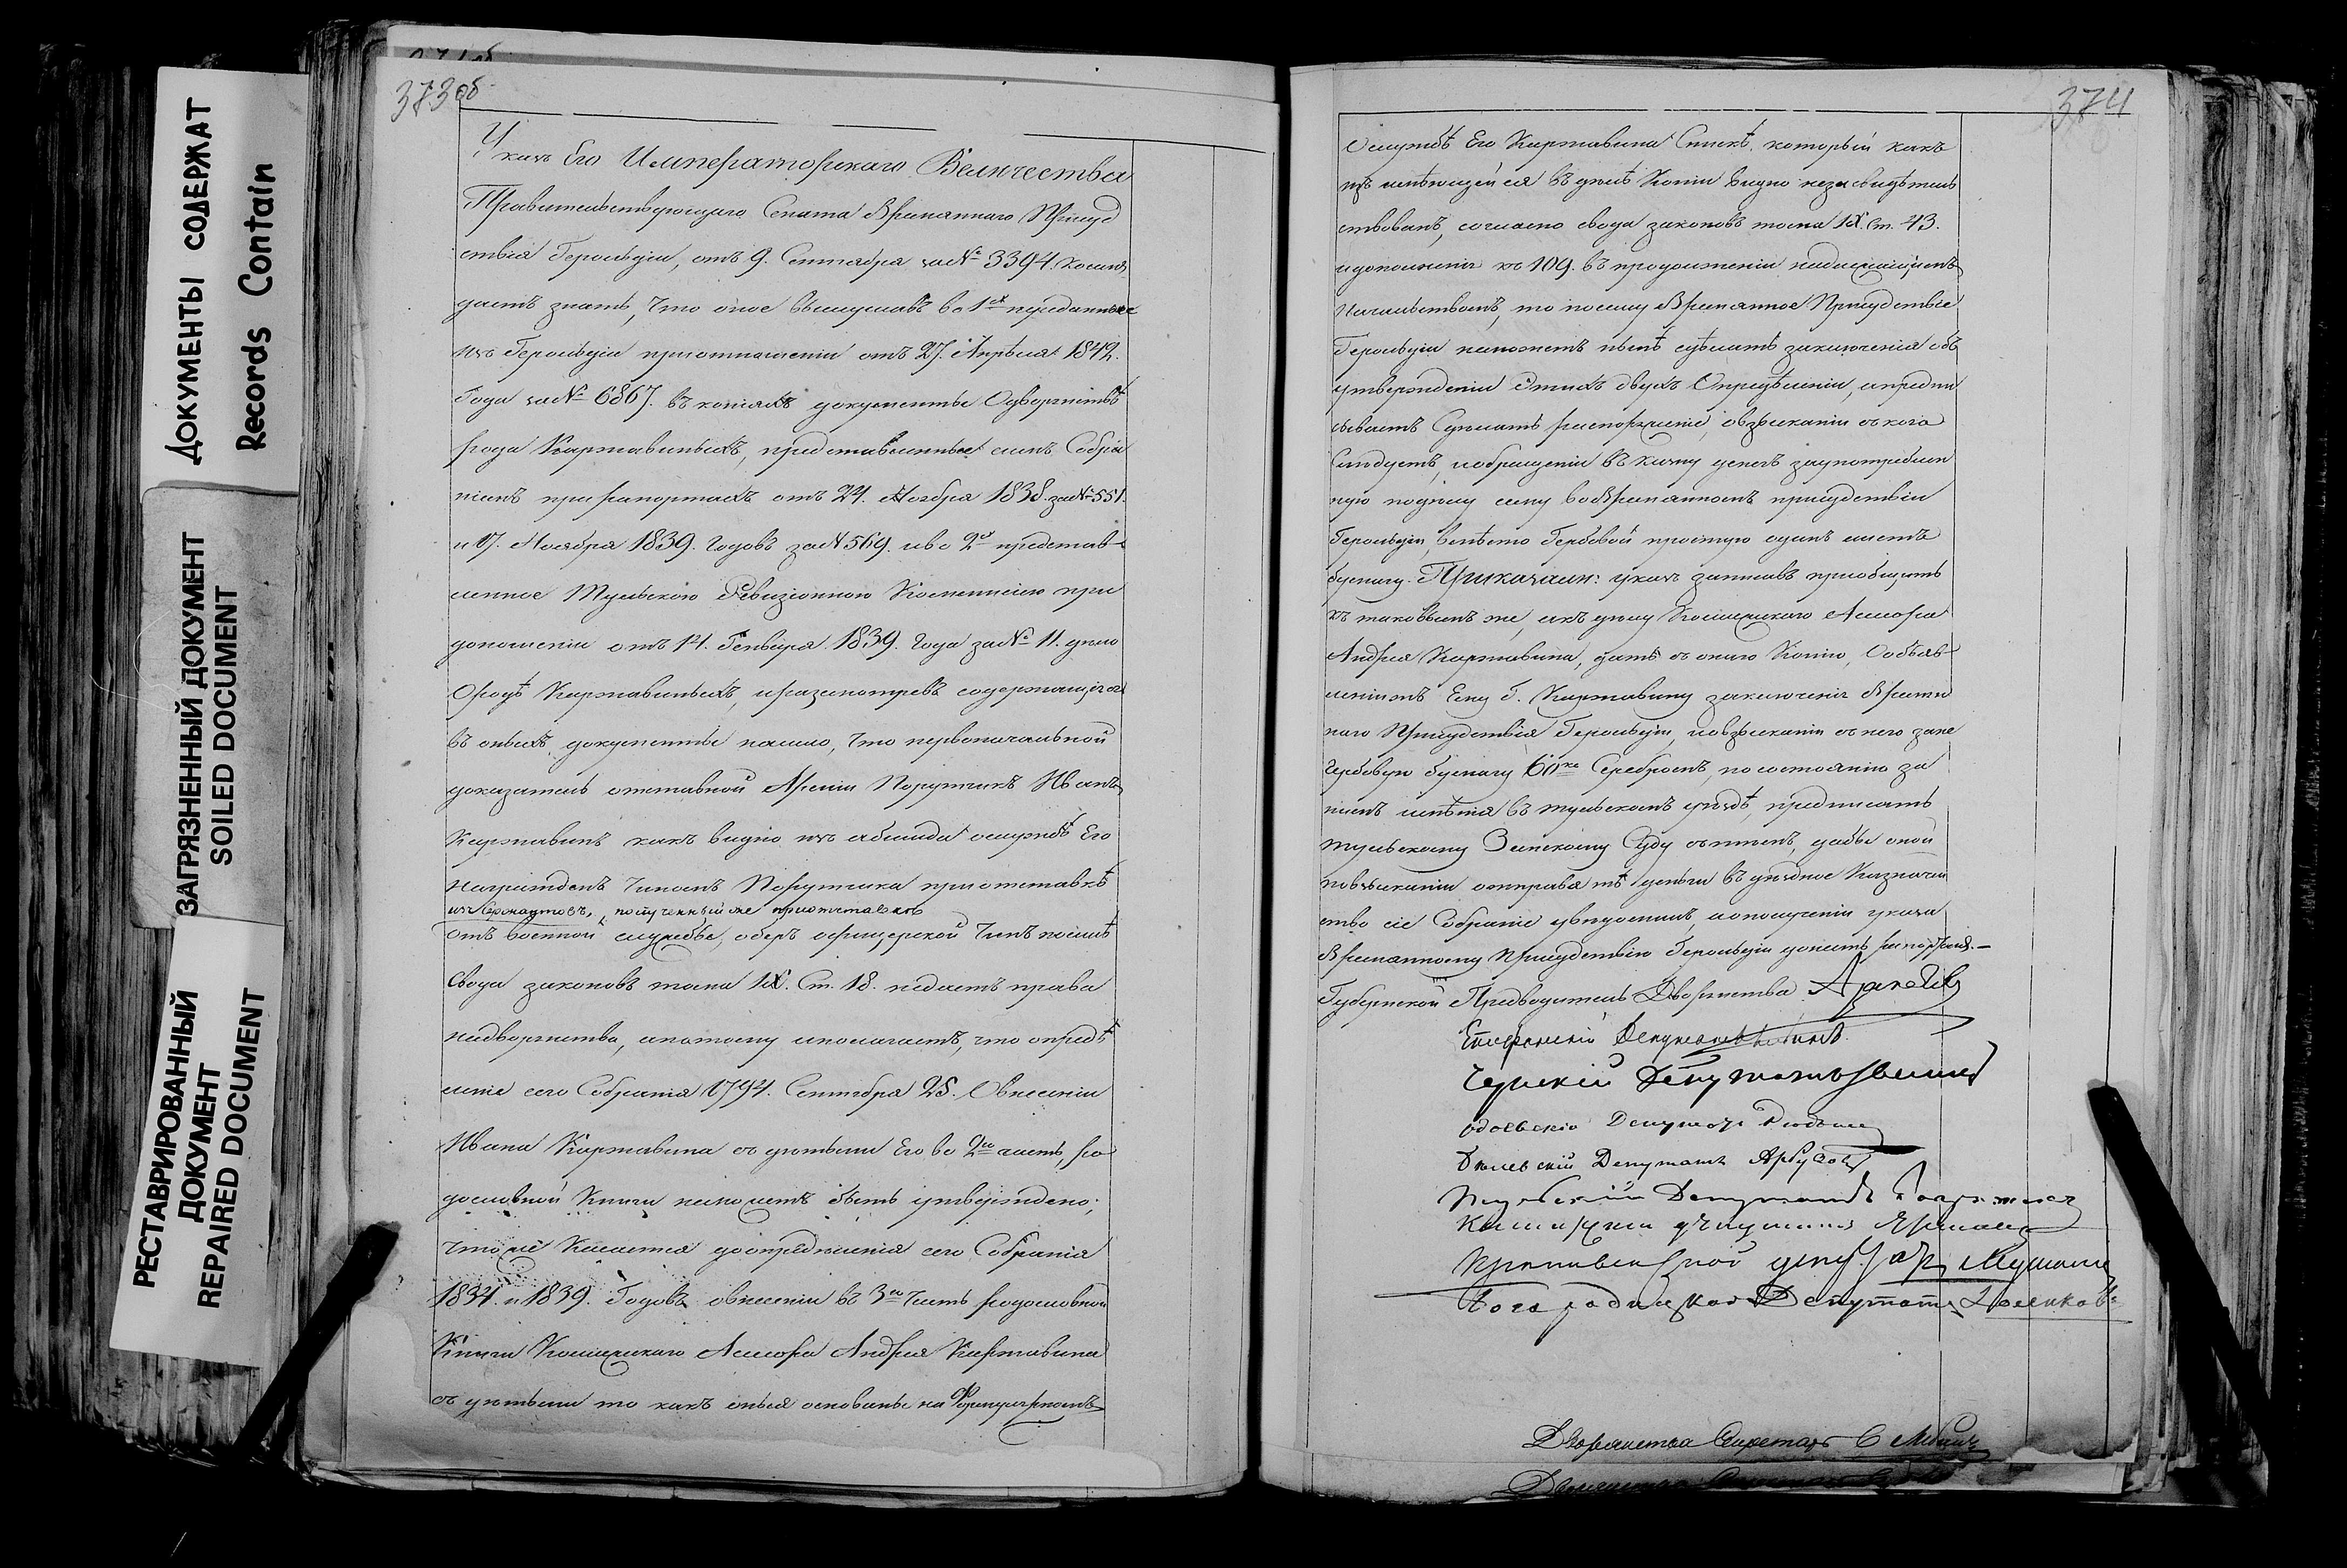 ДОКУМЕНТЫ СОДЕРЖАТ
Records Contain
ЗАГРЯЗНЕННЫЙ ДОКУМЕНТ
SOILED DOCUMENT
РЕСТАВРИРОВАННЫЙ
ДОКУМЕНТ
REPAIRED DOCUMENT
373об
Указъ Его Императорскаго Величества
Правительствующаго Сената Временнаго Присуд
ствія Герольдіи, отъ 9. Сентября за № 3394. коимъ
даетъ знать, что оное выслушавъ во 1х переданные
изъ Герольдіи при отношеніи отъ 27. Апрѣля 1842.
Года за № 6867. въ копіяхъ документы Одворянствѣ
рода Каржавиныхъ, представленные симъ Собра
ніемъ при рапортахъ отъ 24. Ноября 1838. за № 551.
и 17. Ноября 1839. Годовъ за № 569. иво 2х представ-
ленное Тульскою Ревизіонною Коммиссіею при
доношеніи отъ 14. Генваря 1839. Года за № 11. дѣло
Ородѣ Каржавиныхъ, иразсмотревъ содержащіеся
въ оныхъ документы нашло, что первоначальной
доказатель отставной Арміи Порутчикъ Иванъ
Каржавинъ какъ видно изъ абшида ослужбѣ Его
награжденъ Чиномъ Порутчика приотставкѣ
изъ Сержантовъ, полученный же приотставкѣ
отъ военной службы, оберъ офицерской Чинъ посилѣ
Свода законовъ тома IX. Ст. 18. недаетъ права
надворянства, апотому иполагаетъ, что опредѣ
леніе сего Собранія 1794. Сентября 25. Овнесеніи
Ивана Каржавина съ дѣтьми Его во 2ю часть, ро
дословной Книги неможетъ быть утверждено;
чтоже касается доопредѣленія сего Собранія
1834. и 1839. Годовъ овнесеніи въ 3ю Часть родословной
Книги Колежскаго Асесора Андрея Каржавина
съ дѣтьми то какъ оныя основаны на Формулярномъ
374
Ослужбѣ Его Каржавина Спискѣ, который какъ
изъ имѣющейся въ дѣлѣ Копіи видно незасвидѣтель
ствованъ, согласно свода законовъ тома IX. Ст. 43.
идополненія къ 109. въ продолженіи надлежащимъ
Начальствомъ, то посему Временное Присудствіе
Герольдіи неможетъ нынѣ сдѣлать заключенія объ
утвержденіи Этихъ двухъ Опредѣленіи, ипредпи
сываетъ Сдѣлать распоряженіе, овзысканіи ского
Слѣдуетъ, иобращеніи въ казну денегъ заупотреблен
ную подѣлу сему воВременномъ присудствіи
Герольдіи, вмѣсто Гербовой простую одинъ листъ
бумагу. Приказали: указъ записавъ приобщить
къ таковымъ же, икъ дѣлу Колежскаго Асесора
Андрея Каржавина, датъ съ онаго Копію, Ообъяв-
леніемъ Ему Г. Каржавину заключенія Времен
наго Присудствія Герольдіи, иовзысканіи снего зане
Гербовую бумагу 60 ко Серебромъ, посостоянію за
нимъ имѣнія въ тульскомъ уѣздѣ, предписать
тульскому Земскому Суду стѣмъ, дабы оной
повзысканіи отправя тѣ деньги въ уѣздное Казначей
ство сіе Собраніе увѣдомилъ, аополученіи указа
Временному Присудствію Герольдіи донесть рапортомъ.—
Губернской Предводитель Дворянства
Ефремскій Депутатъ
Чернскій Депутатъ
Одоевскій Депутатъ
Бѣлевскій Депутатъ Арбузовъ
Тульскій Депутатъ
Каширскій депутатъ
Крапивенской депутатъ
Богородицкой Депутатъ
Дворянства Секретарь